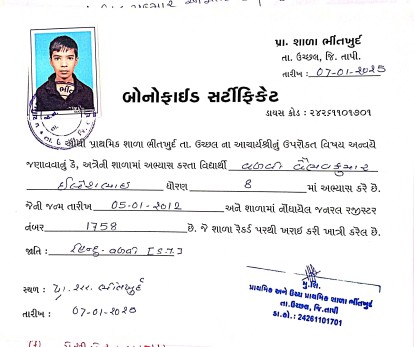 પ્રા. શાળા ભીંતખુર્દ
તા. ઉચ્છલ, જિ. તાપી.
તારીખ : 07-01-2025
બોનોફાઈડ સર્ટીફિકેટ
ડાયસ કોડ : ૨૪૨૬૧૧૦૧૭૦૧
પ્રાથમિક શાળા ભીંતખુર્દ તા. ઉચ્છલ ના આચાર્યશ્રીનું ઉપરોકત વિષય અન્વયે
જણાવવાનું કે, અત્રેની શાળામાં અભ્યાસ કરતા વિદ્યાર્થી વળવી
ધોરણ 8 માં અભ્યાસ કરે છે.
જેની જન્મ તારીખ 05-01-2012 અને શાળામાં નોંધાયેલ જનરલ રજીસ્ટર
નંબર 1758 છે. જે શાળા રેકર્ડ પરથી ખરાઈ કરી ખાત્રી કરેલ છે.
જાતિ : હિન્દુ-વળવી [S.T.]
સ્થળ : પ્રા. શા. ભીંતખુર્દ
તારીખ : 07-01-2025
મુ.શિ.
પ્રાથમિક અને ઉચ્ચ પ્રાથમિક શાળા ભીંતખુર્દ
તા.ઉચ્છલ, જિ.તાપી
ડા.કો.: 24261101701